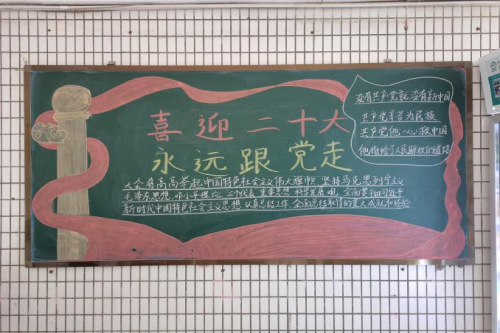 喜迎二十大
永远跟党走
大会将高高举起中国特色社会主义伟大旗帜 坚持马克思列宁主义
毛泽东思想、邓小平理论、三个代表 重要思想 科学发展观，全面贯彻习近平
新时代中国特色社会主义思想，认真总结工作 全面总结
没有共产党就没有新中国
共产党辛苦为民族
共产党他一心救中国
他指给了人民解放的道路